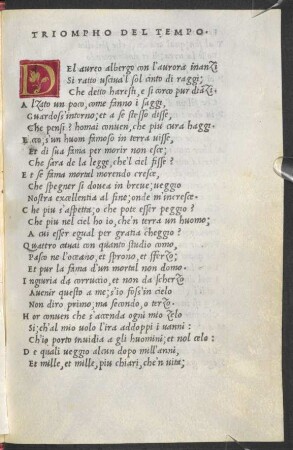 TRIOMPHO DEL TEMPO.
DEl aureo albergo con l'aurora inanzi
Si ratto usciua'l sol cinto di raggi;
Che detto haresti, e si corcò pur dianzi.
A lZato un poco, come fanno i saggi,
Guardoss'intorno; et a se stesso disse,
Che pensi? homai conuen, che piu cura haggi.
E cco, s'un huom famoso in terra uisse,
Et di sua fama per morir non esce;
Che sara de la legge, che'l ciel fisse?
E t se fama mortal morendo cresce,
Che spegner si doueua in breue; ueggio
Nostra excellentia al fine; onde m'incresce.
C he piu s'aspetta; o che pote esser peggio?
Che piu nel ciel ho io, che'n terra un huomo;
A cui esser egual per gratia cheggio?
Quattro caual con quanto studio como,
Pasco ne l'oceano, et sprono, et sferzo;
Et pur la fama d'un mortal non domo.
I ngiuria da corruccio, et non da scherzo
Auenir questo a me; s'io foss'in cielo
Non dirò primo, ma secondo, o terzo.
H or conuen che s'accenda ogni mio zelo
Si; ch'al mio uolo l'ira addoppi i uanni:
Ch'io porto inuidia a gli huomini; et nol celo:
D e quali ueggio alcun dopo mill'anni,
Et mille, et mille, piu chiari, che'n uita;